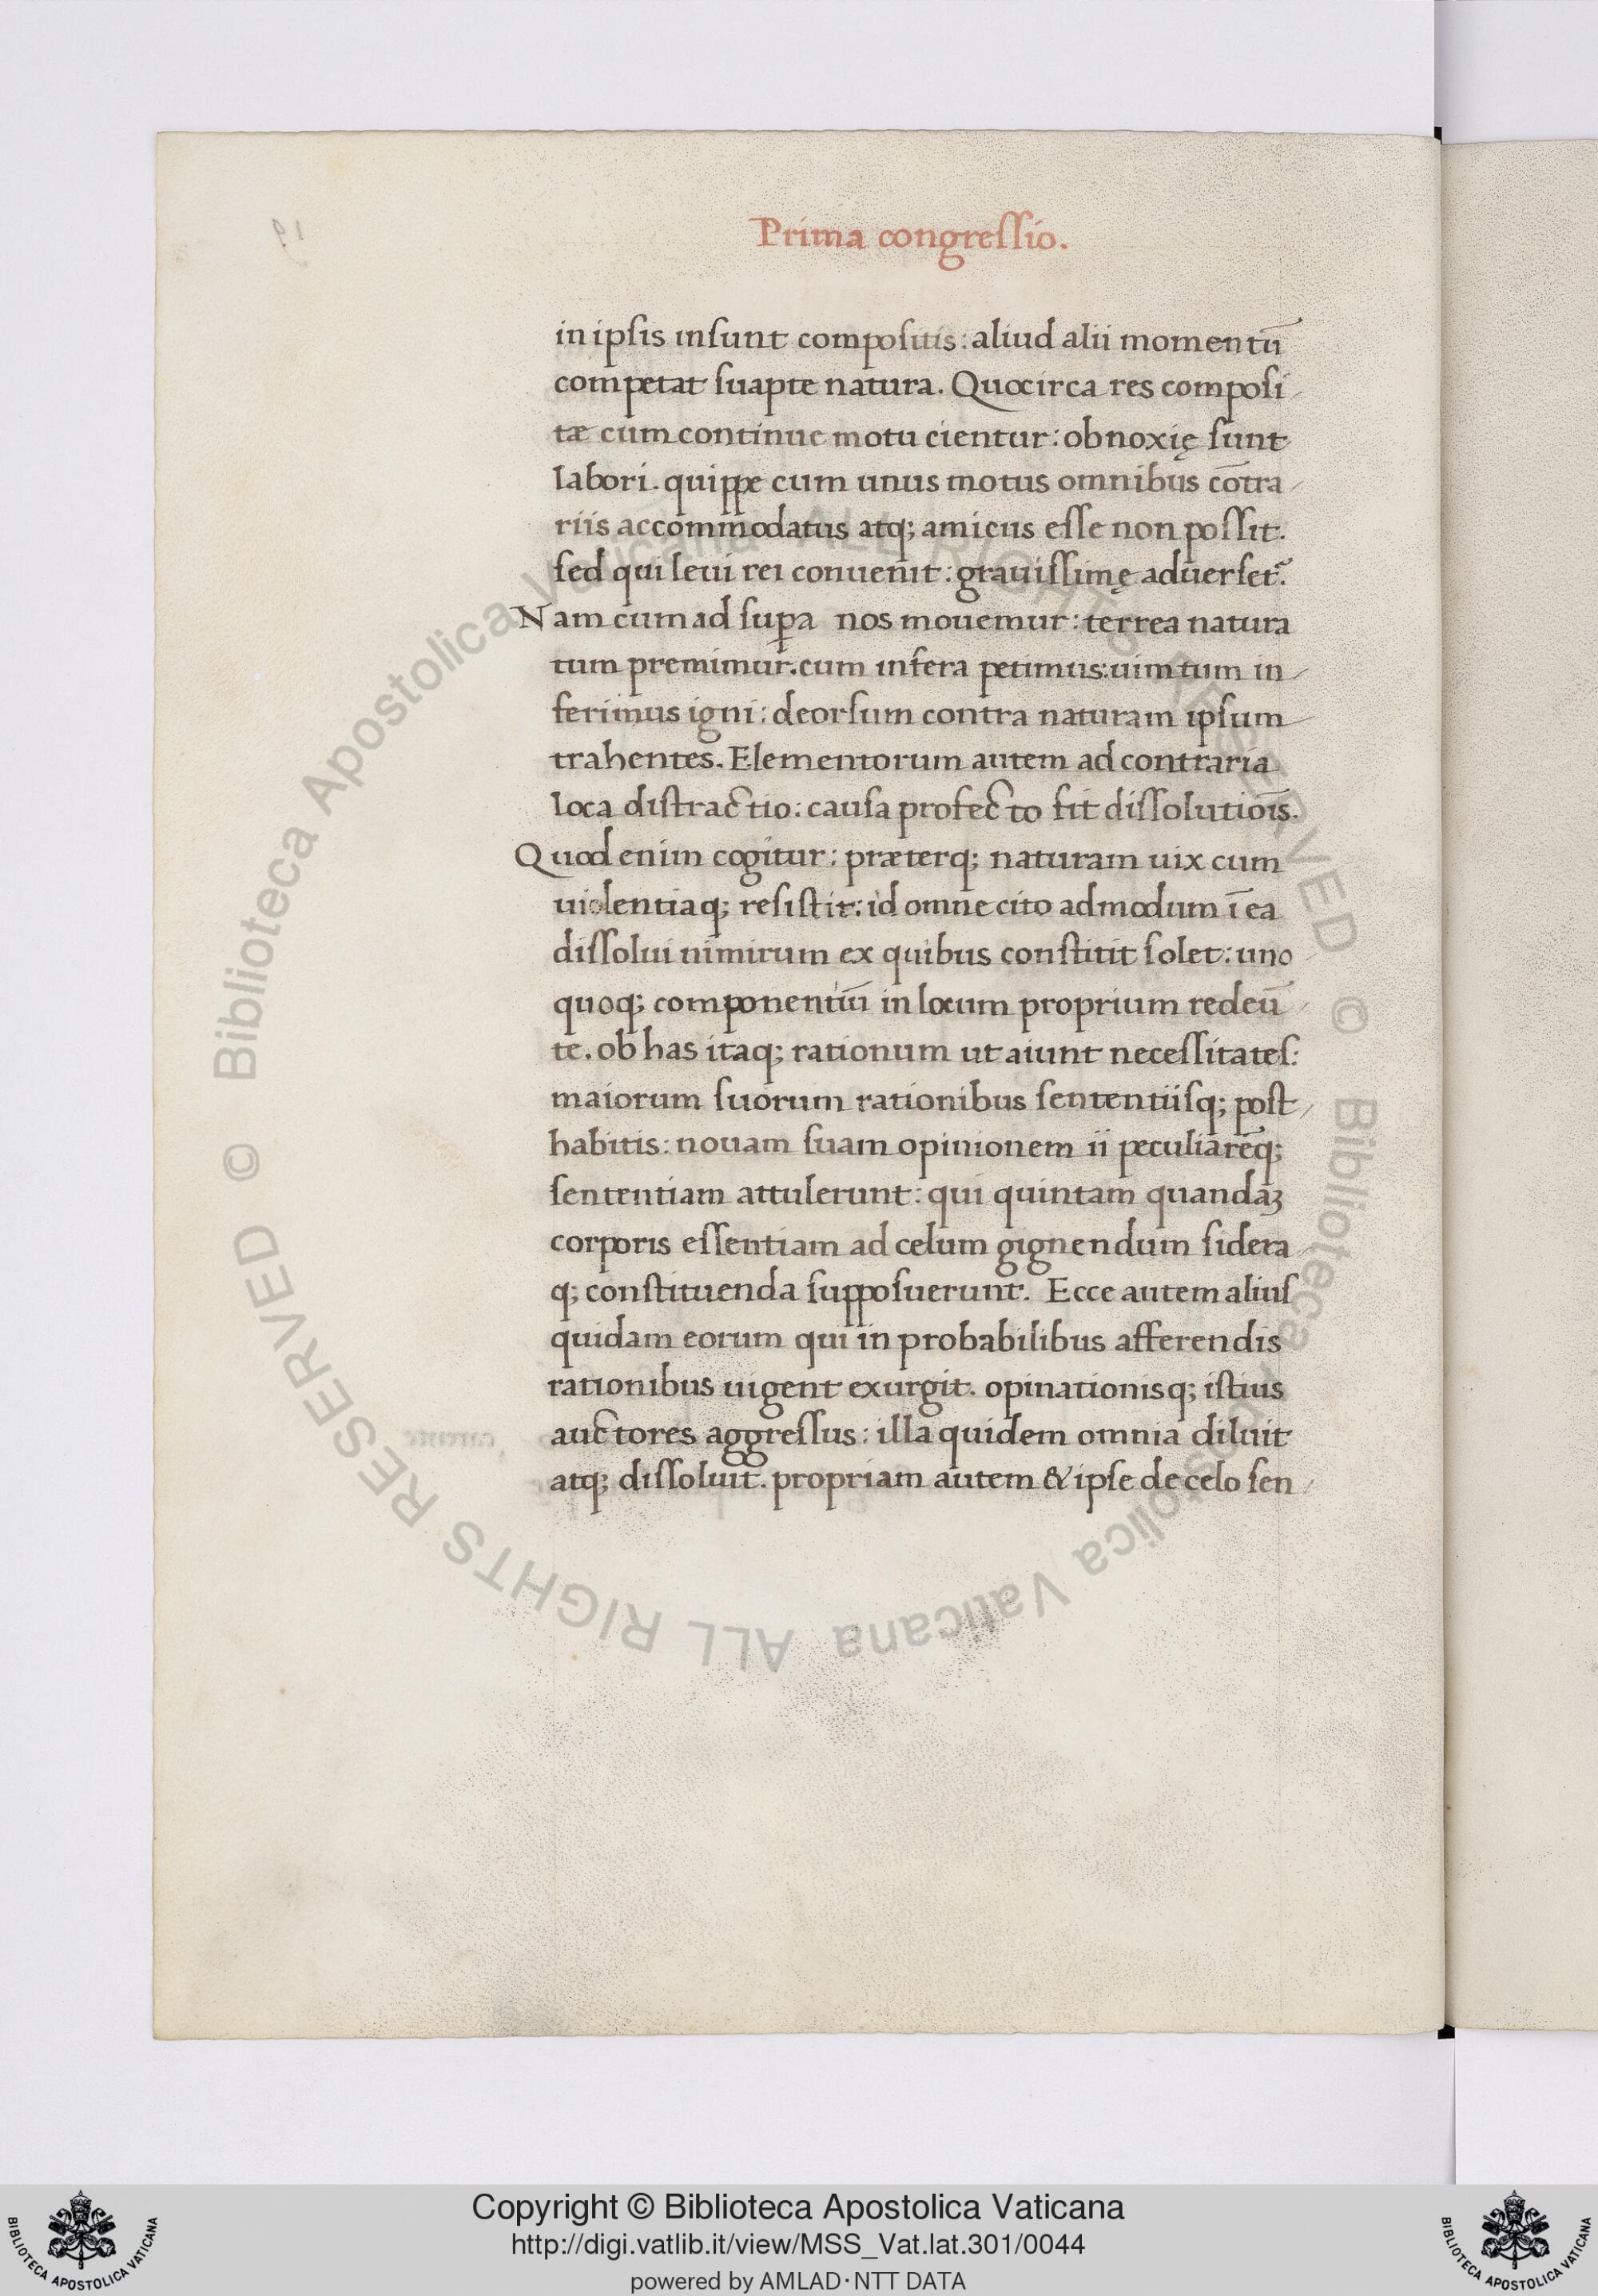 Prima congreſſio.
in ipſis inſunt compoſitis: aliud alii momentū
competat ſuapte natura. Quocirca res compoſi
tæ cum continue motu cientur: obnoxię ſunt
labori. quippe cum unus motus omnibus cōtra
riis accommodatus atq; amicus eſſe non poſſit.
ſed qui leui rei conuenit: grauiſſimę aduerſet᷑.
Nam cum ad suꝑa nos mouemur: terrea natura
tum premimur. cum infera petimus: uim tum in
ferimus igni: deorſum contra naturam ipſum
trahentes. Elementorum autem ad contraria
loca diſtractio: cauſa profecto fit diſſolutiōis.
Quod enim cogitur: præterq; naturam uix cum
uiolentiaq; reſiſtit: id omne cito admodum ī ea
diſſolui nimirum ex quibus conſtitit ſolet: uno
quoq; componentiū in locum proprium redeū
te. ob has itaq; rationum ut aiunt neceſſitateſ:
maiorum ſuorum rationibus ſententiiſq; poſt
habitis: nouam ſuam opinionem ii peculiarēq;
ſententiam attulerunt: qui quintam quandaꝫ
corporis eſſentiam ad celum gignendum ſidera
q; conſtituenda ſuppoſuerunt. Ecce autem aliuſ
quidam eorum qui in probabilibus afferendis
rationibus uigent exurgit. opinationisq; iſtius
auctores aggreſſus: illa quidem omnia diluit
atq; diſſoluit. propriam autem & ipſe de celo ſen
© Biblioteca Apostolica Vaticana ALL RIGHTS RESERVED © Biblioteca Apostolica Vaticana ALL RIGHTS RESERVED
Copyright © Biblioteca Apostolica Vaticana
http://digi.vatlib.it/view/MSS_Vat.lat.301/0044
powered by AMLAD·NTT DATA
BIBLIOTECA APOSTOLICA VATICANA
BIBLIOTECA APOSTOLICA VATICANA